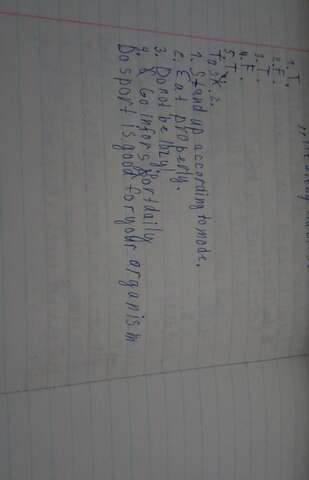 1. T.
2. F.
3. T.
4. F.
5. T.
Task. 2.
1. Stand up according to mode.
2. Eat properly.
3. Do not be lazy!
4. Go in for sport daily
Do sport is good for your arganism